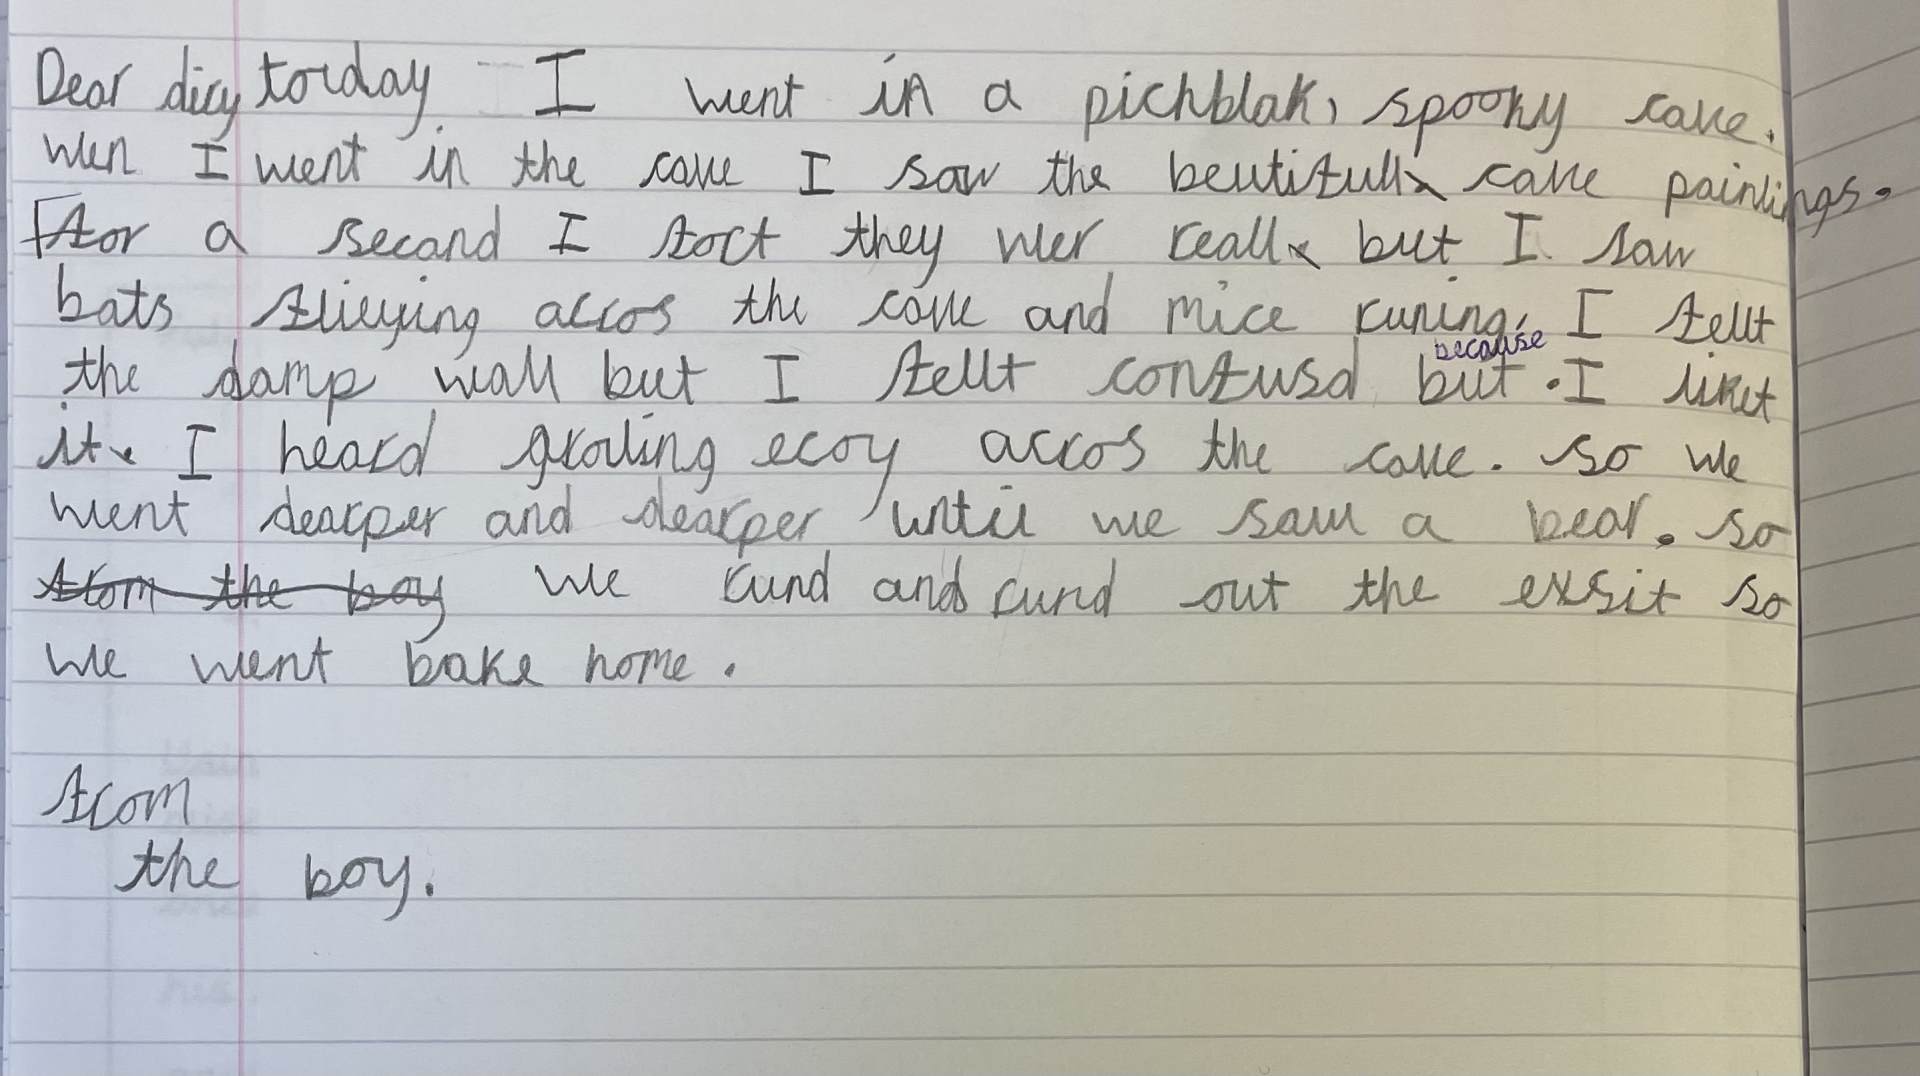 Dear diey torday I went in a pichblak, spooky cave.
wen I went in the cave I saw the beutifull cave paintings.
For a second I fort they wer reall but I saw
bats flieying accros the cave and mice runing, I fellt
the damp wall but I fellt confusd but because . I liket
it. I heard groling ecoy accros the cave. so we
went dearper and dearper until we saw a bear. so
from the boy we rund and rund out the exsit so
we went bake home.
from
the boy.